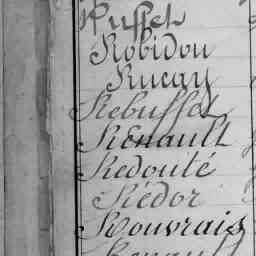 Ruffet
Robidou
Rucay
Rebuffet
Renault
Redouté
Rédor
Rouvrais
Renault